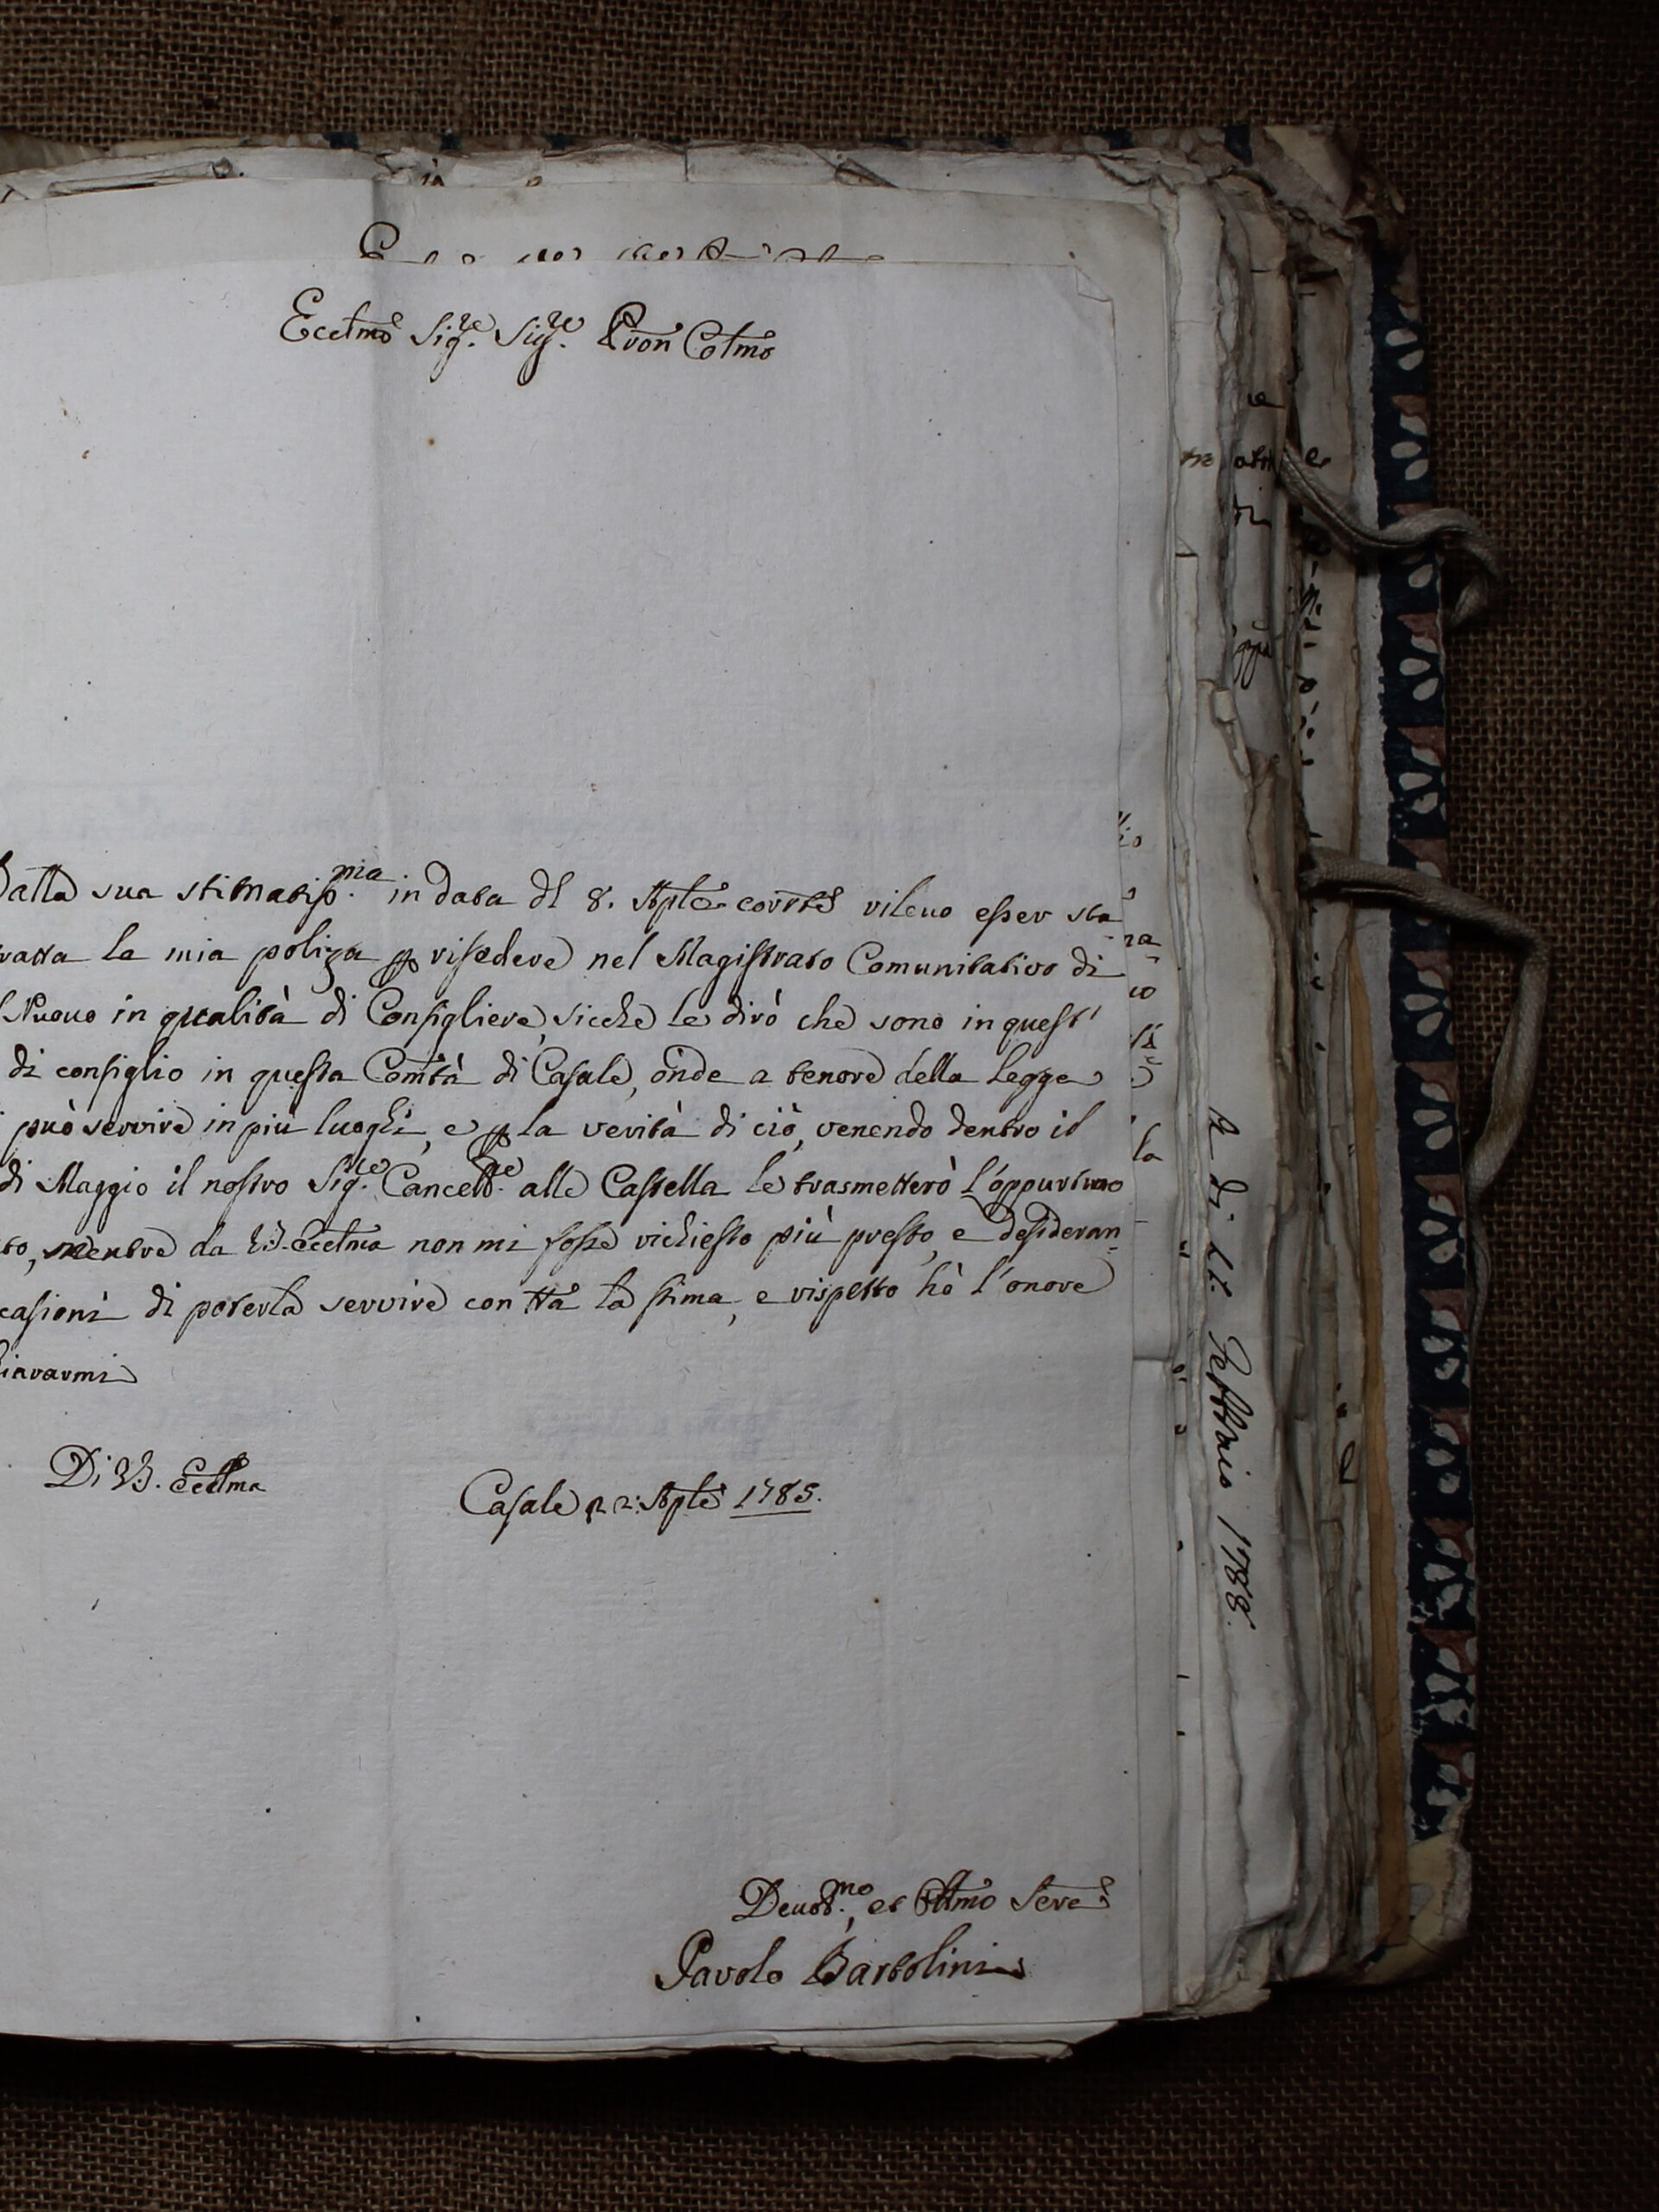 Ecclmo Sig.re Sig.re Pron Colmo
Dalla sua stimatiss.ma in data dl 8. Aple corrte rileuo esser sta
ratta la mia poliza p risedere nel Magistrato Comunitativo di
l Nuouo in qualità di Consigliere, sicche le dirò che sono in quest'
di consiglio in questa Comtà di Casale, onde a tenore della Legge
può servire in più luoghi, e p la verità di ciò, venendo dentro il
di Maggio il nostro Sig.re Cancell.re alle Castella le trasmetterò l'oppurtuno
to, mentre da V.S. Ecclma non mi fosse richiesto più presto, e desideran-
casioni di poterla servire con tta la stima, e rispetto hò l'onore
iararmi
Di V.S. Ecclma
Casale 22: Aple 1785.
Deuot.mo, et Obblmo Sere
Pavolo Bartolini
A di 21: Febbraio 1788.